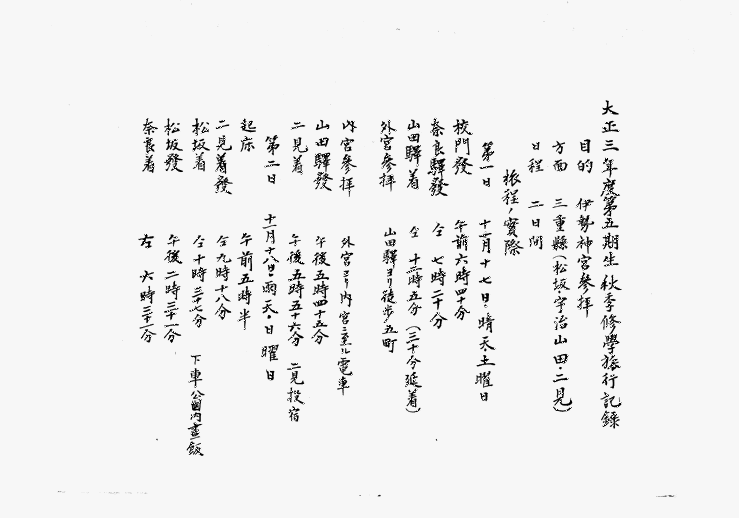 大正三年度第五期生秋季修學旅行記錄
目的 伊勢神宮參拜
方面 三重縣(松坂・宇治山田・二見)
日程 二日間
旅程ノ實際
第一日 十一月十七日・晴天・土曜日
校門發 午前六時四十分
奈良驛發 仝 七時二十分
山田驛着 仝 十一時五分(三十分延着)
外宮參拜 山田驛ヨリ徒歩五町
內宮參拜 外宮ヨリ內宮ニ至ル電車
山田驛發 午後五時四十五分
二見着 午後五時五十六分 二見投宿
第二日 十一月十八日・雨天・日曜日
起床 午前五時半
二見着發 仝九時十八分
松坂着 仝十時三十七分 下車公園內晝飯
松坂發 午後二時三十一分
奈良着 左 六時三十一分